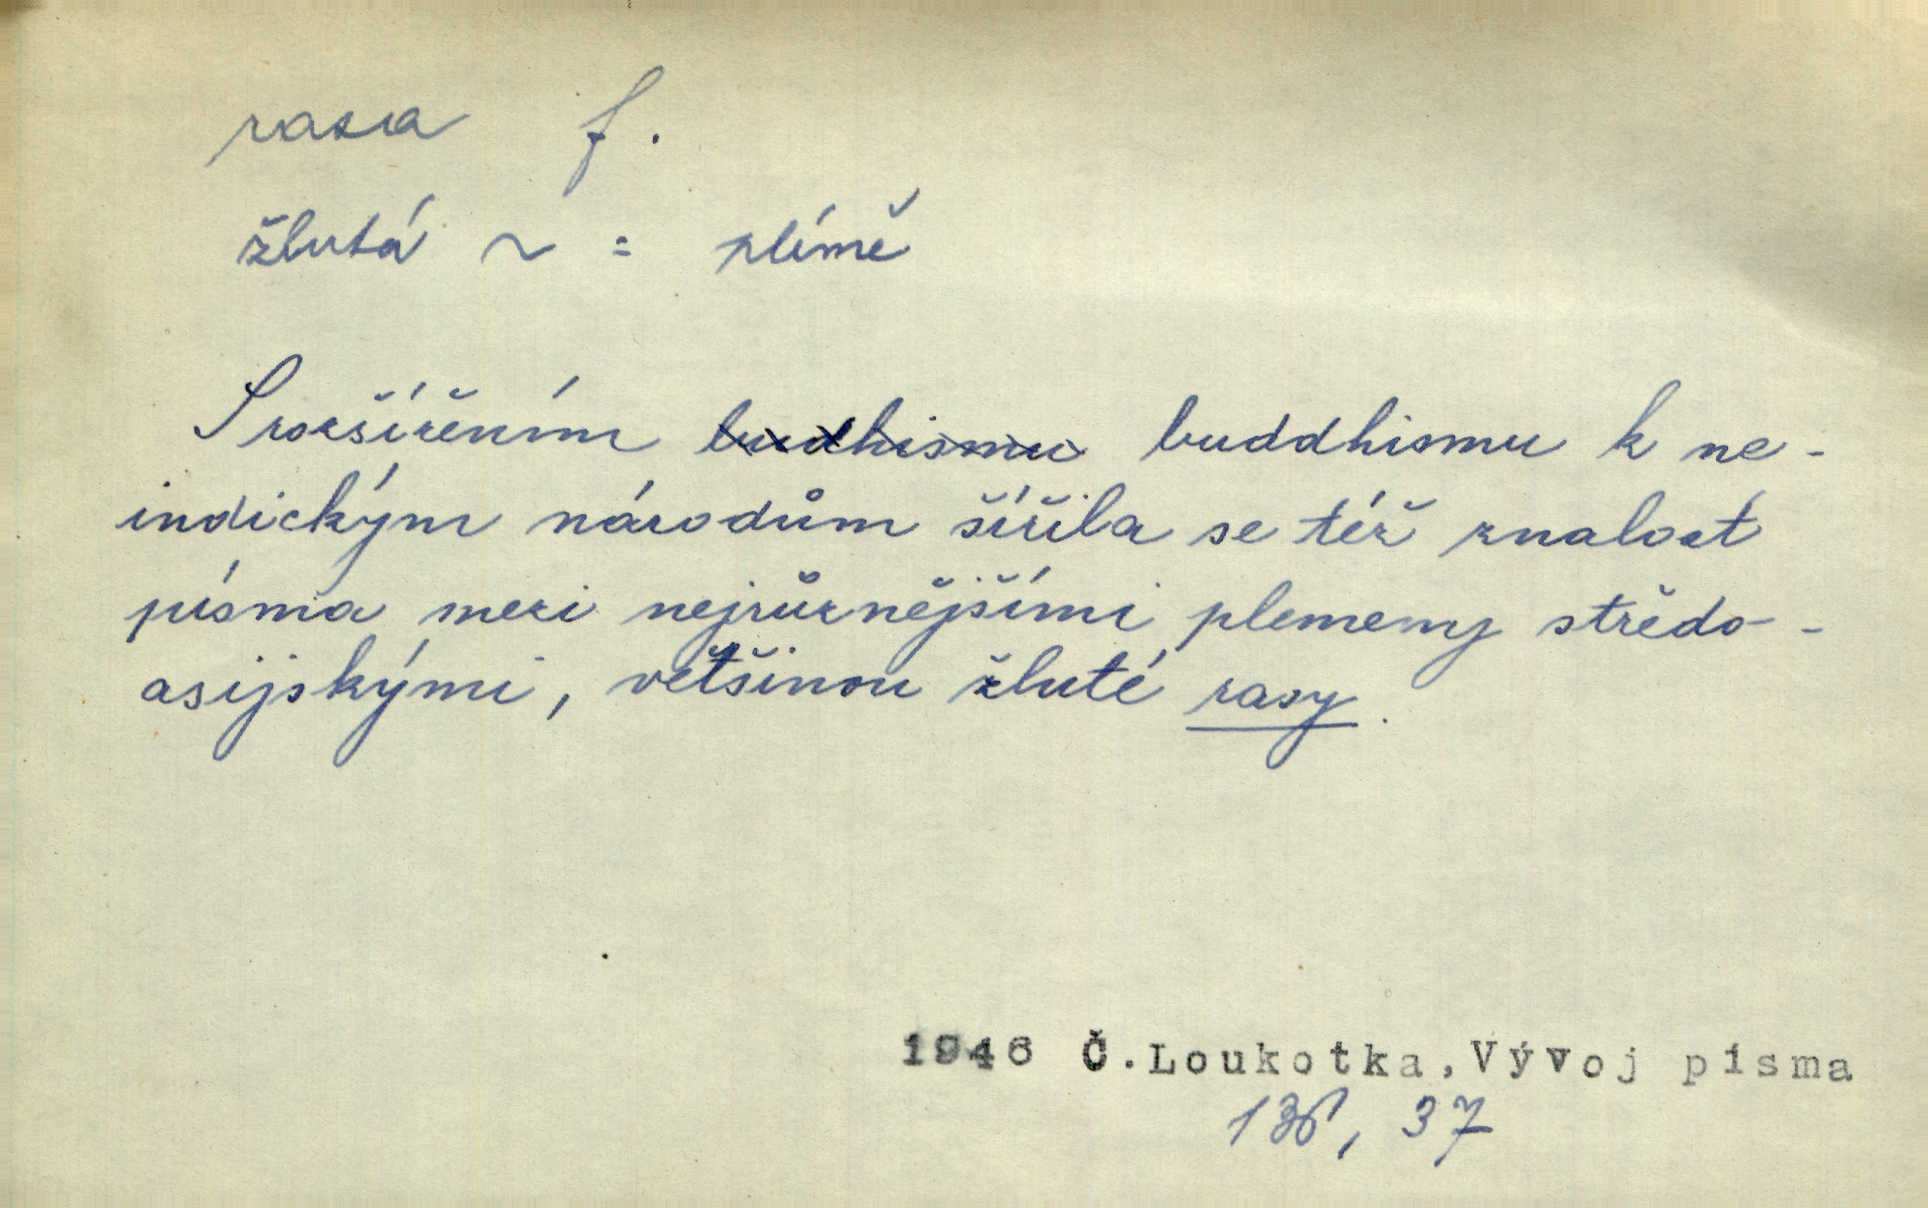 rasa f.
žlutá ~ = plémě
S rozšířením budhismu buddhismu k ne-
indickým národům šířila se též znalost
písma mezi nejrůznějšími plemeny středo-
asijskými, většinou žluté rasy.
1946 Č.Loukotka,Vývoj písma
136, 37